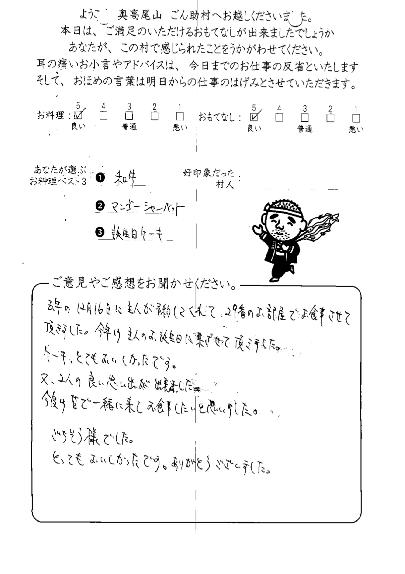 ようこそ 奥高尾山 ごん助村へお越しくださいました。
本日は、ご満足のいただけるおもてなしが出来ましたでしょうか
あなたが、この村で感じられたことをうかがわせてください。
耳の痛いお小言やアドバイスは、今日までのお仕事の反省といたします
そして、おほめの言葉は明日からの仕事のはげみとさせていただきます。
お料理: 5 4 3 2 1 おもてなし: 5 4 3 2 1
良い 普通 悪い 良い 普通 悪い
あなたが選ぶ
お料理ベスト3
❶ 和牛
❷ マンゴーシャーベット
❸ 誕生日ケーキ
好印象だった
村人
ご意見やご感想をお聞かせください。
去年の12月16日に主人が予約してくれて、29番のお部屋でお食事させて
頂きました。今年は主人のお誕生日に来させて頂きました。
ケーキ、とてもおいしかったです。
又、2人の良い思い出が出来ました。
今度は皆で一緒に来てお食事したいと思いました。
ごちそう様でした。
とってもおいしかったです。ありがとうございました。